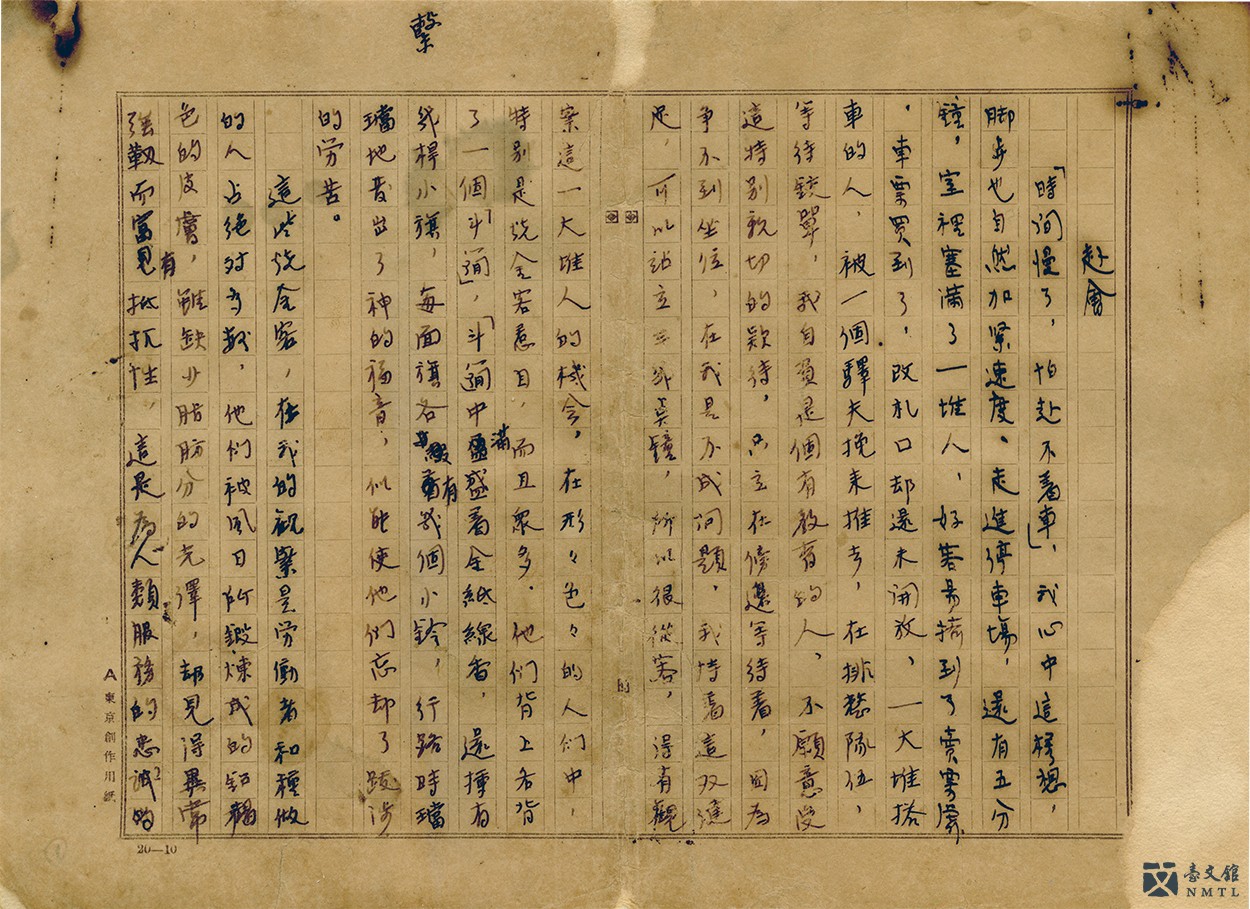 繫
赴會
「時间慢了，怕赴不着車」，我心中這樣想，
脚步也自然加緊速度。走進停車場，還有五分
鐘，室裡塞滿了一堆人，好容易擠到了賣票處
，車票買到了，改札口却還未開放，一大堆搭
車的人，被一個驛夫挽来推去，在排整隊伍，
等待鋏單，我自負是個有教育的人，不願意受
這特別親切的欵待，只立在傍邊等待着，因為
争不到坐位，在我是不成问題，我恃着這双健
足，可以站立三或点鐘，所以很從容，得有觀
案這一大堆人的機会，在形々色々的人们中，
特别是燒金客惹目，而且衆多．他们背上各背
了一個「斗筒」，「斗筒中滿盛着金紙線香，還揷有
幾桿小旗，每面旗各綴有幾個小鈴，行路時璫
璫地發出了神的福音，似能使他们忘却了跋涉
的劳苦。
這些燒金客，在我的觀察是劳働者和種做
的人占絕对多数，他们被風日所鍛煉成的鉛褐
色的皮膚，雖缺少脂肪分的光澤，却見得異常
强靱而富有抵抗性，這是為人類服務的忠誠的
A 東京創作用紙
20—10
臺文館
NMTL